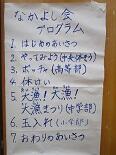 なかよし会
プログラム
1 はじめのあいさつ
2. やってみよう(中央体そう)
3. ボッチャ(高等部)
4 休けい
5 大漁!大漁!
大漁まつり(中学部)
6. 玉入れ(小学部)
7 おわりのあいさつ